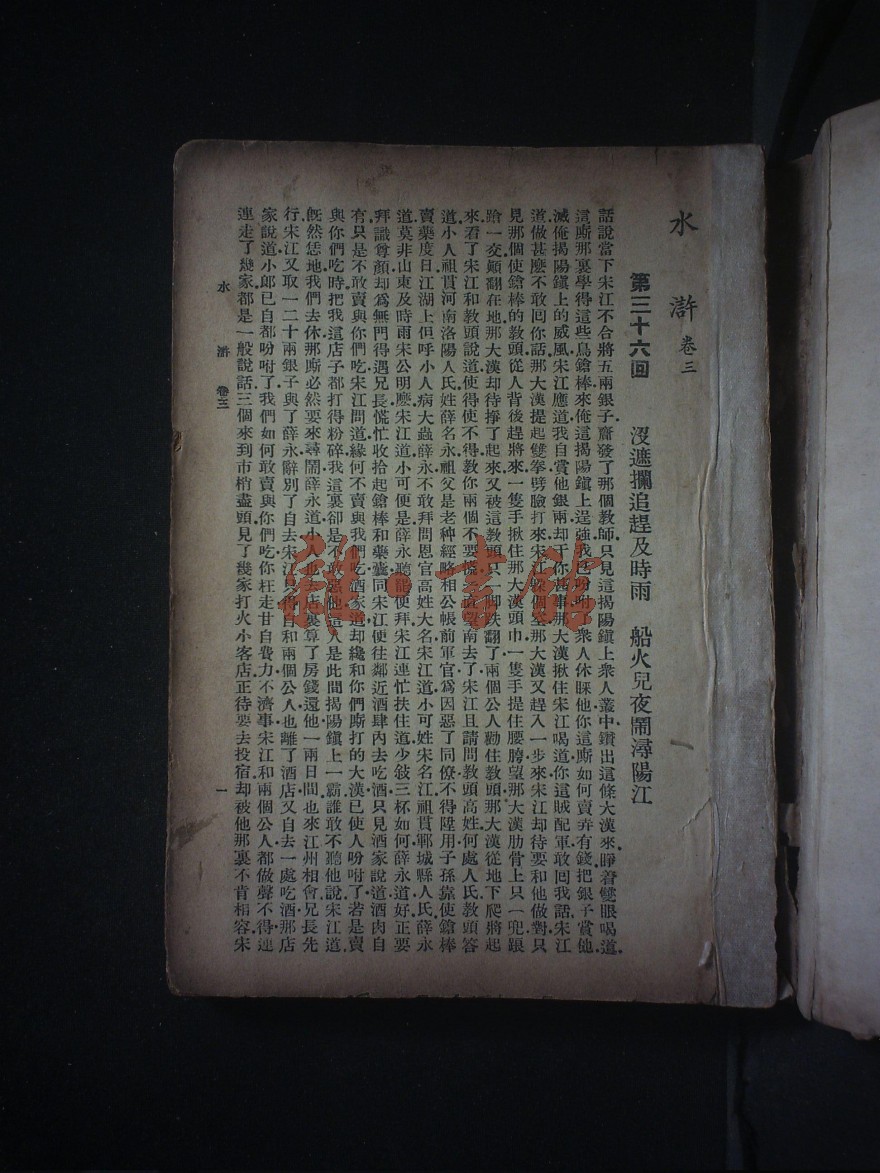 水滸 卷三
第三十六回 沒遮攔追趕及時雨 船火兒夜鬧潯陽江
話說當下宋江不合將五兩銀子齎發了那個教師只見這揭陽鎮上衆人叢中鑽出這條大漢來睜着雙眼喝道
這厮那裏學得這些鳥鎗棒來俺這揭陽鎮上逞強我已吩咐了衆人休睬他你這厮如何賣弄有錢把銀子賞他
滅俺揭陽鎮上的威風宋江應道我自賞他銀兩却干你甚事那大漢揪住宋江喝道你這賊配軍敢囘我話宋江
道做甚麽不敢囘你話那大漢提起雙拳劈臉打來宋江躱個空那大漢又趕入一步來宋江却待要和他做對只
見那個使鎗棒的教頭從人背後趕將來一隻手揪住那大漢頭巾一隻手提住腰胯望那大漢肋骨上只一兜踉
蹌一交顚翻在地那大漢却待掙了起來又被這教頭只一脚踢翻了兩個公人勸住教頭那大漢從地下爬將起
來看了宋江和教頭說道使得使不得教你兩個不要慌一直望南去了宋江且請問教頭高姓何處人氏教頭答
道小人祖貫河南洛陽人氏姓薛名永祖父是老种經略相公帳前軍官爲因惡了同僚不得陞用子孫靠使鎗棒
賣藥度日江湖上但呼小人病大蟲薛永不敢拜問恩官高姓大名宋江道小可姓宋名江祖貫鄆城縣人氏薛永
道莫非山東及時雨宋公明麽宋江道小可便是薛永聽罷便拜宋江連忙扶住道少敍三杯如何薛永道好正要
拜識尊顏却爲無門得遇兄長慌忙收拾起鎗棒和藥囊同宋江便往鄰近酒肆內去吃酒只見酒家說道酒肉自
有只是不敢賣與你們吃宋江問道緣何不賣與我們吃酒家道却纔和你們厮打的大漢已使人吩咐了若是賣
與你們吃時把我這店子都打得粉碎我這裏卻是不敢惡他這人是此間揭陽鎮上一霸誰敢不聽他說宋江道
旣然恁地我們去休那厮必然要來尋鬧薛永道小人也去店裏算了房錢還他一兩日間也來江州相會兄長先
行宋江又取一二十兩銀子與了薛永辭別了自去宋江只得自和兩個公人也離了酒店又自去一處吃酒那店
家說道小郎已自都吩咐了我們如何敢賣與你們吃你枉走甘自費力不濟事宋江和兩個公人都做聲不得連
連走了幾家都是一般說話三個來到市梢盡頭見了幾家打火小客店正待要去投宿却被他那裏不肯相容宋
水滸 卷三 一